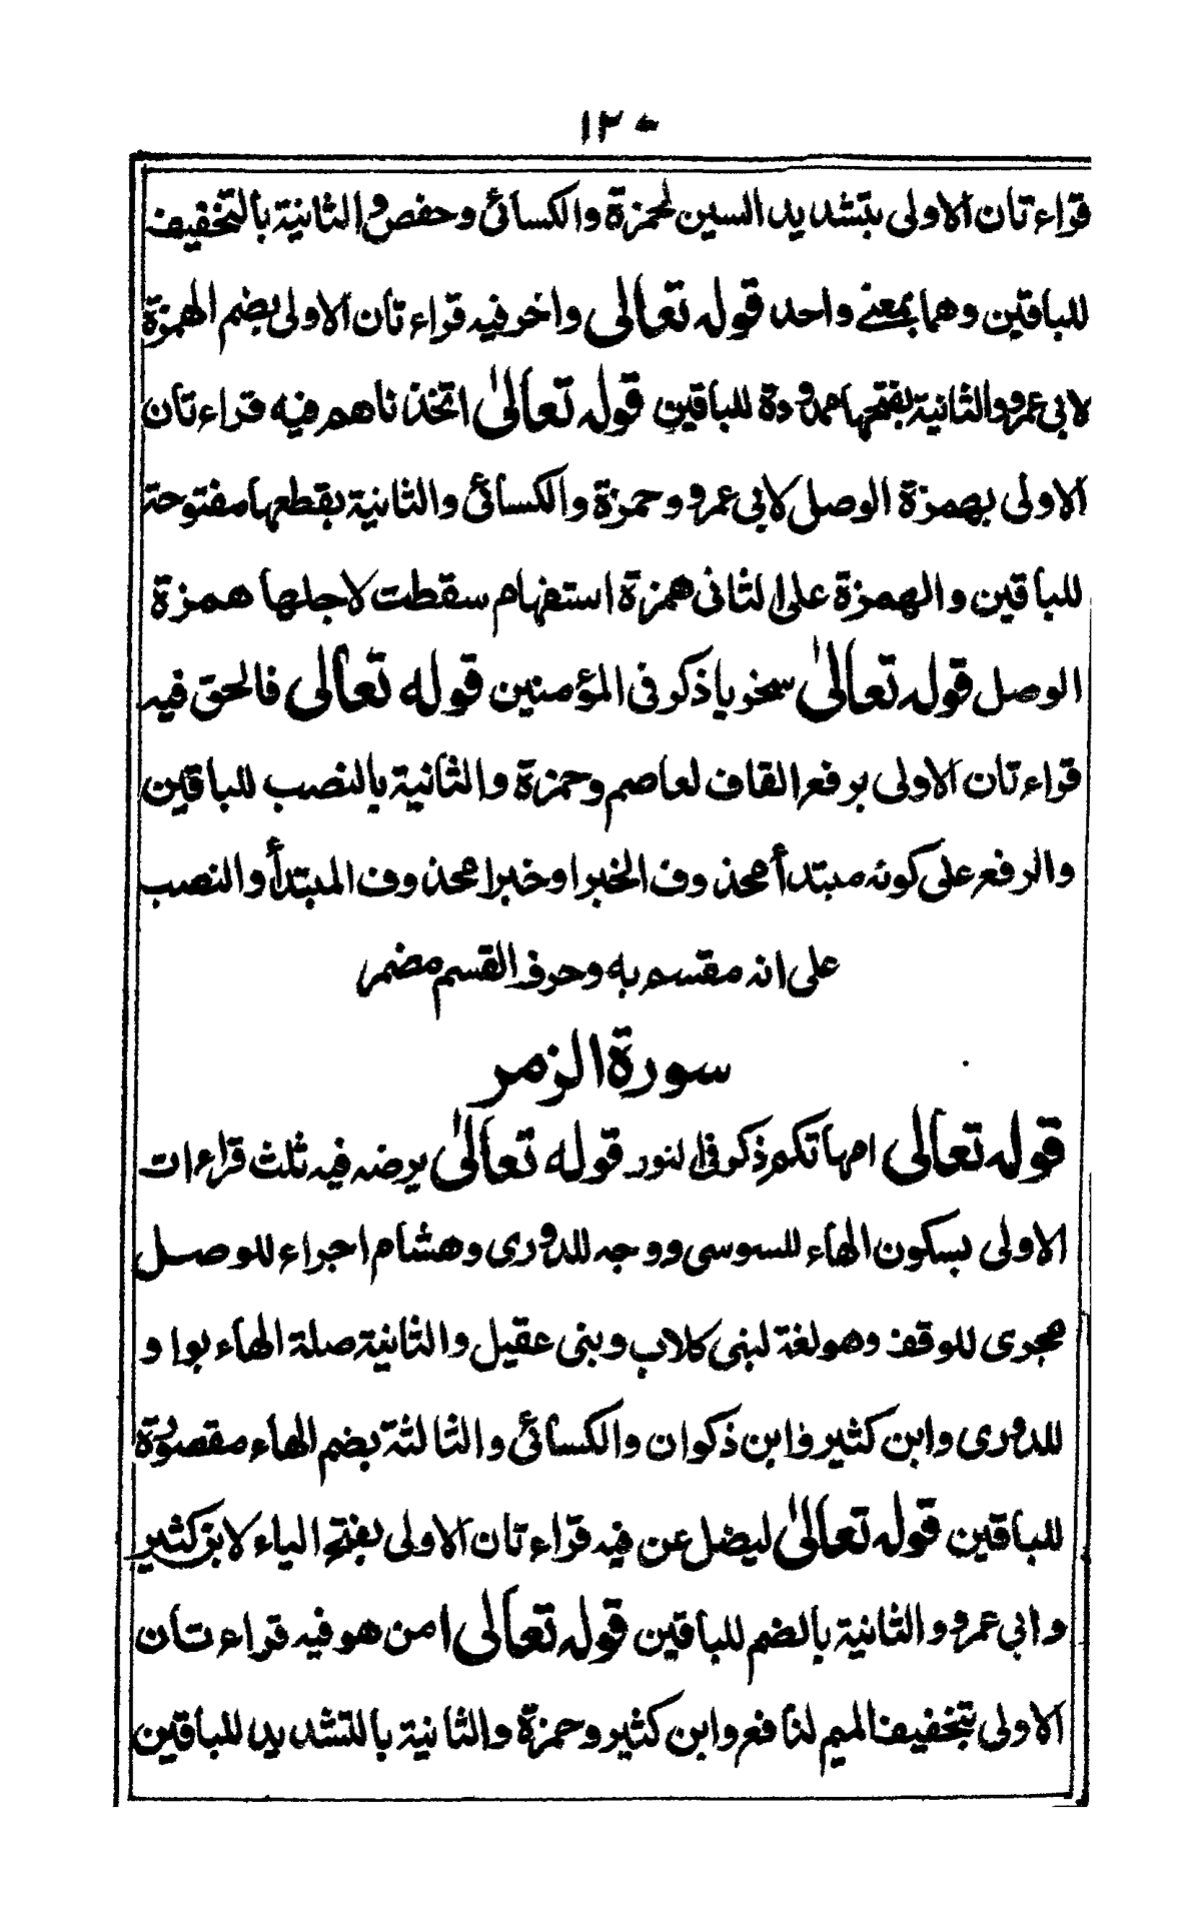 ١٢٠
قراءتان الاولى بتشديد السين لحمزة والكسائى وحفص والثانية بالتخفيف
للباقين وهما بمعنے واحد قوله تعالى واخر فيه قراءتان الاولى بضم الهمزة
لابى عمرو والثانية بفتحها ممدودة للباقين قوله تعالىٰ اتخذناهم فيه قراءتان
الاولى بهمزة الوصل لابى عمرو وحمزة والكسائى والثانية بقطعها مفتوحة
للباقين والهمزة على الثانى همزة استفهام سقطت لاجلها همزة
الوصل قوله تعالىٰ سخريا ذكر فى المؤمنين قوله تعالى فالحق فيه
قراءتان الاولى برفع القاف لعاصم وحمزة والثانية بالنصب للباقين
والرفع على كونه مبتدأ محذوف الخبر او خبرا محذوف المبتدأ والنصب
على انه مقسم به وحرف القسم مضمر
سورة الزمر
قوله تعالى امهاتكم ذكر فى النور قوله تعالىٰ يرضه فيه ثلث قراءات
الاولى بسكون الهاء للسوسى ووجه للدورى وهشام اجراء للوصل
مجرى للوقف وهو لغة لبنى كلاب وبنى عقيل والثانية صلة الهاء بواو
للدورى وابن كثير وابن ذكوان والكسائى والثالثة بضم الهاء مقصورة
للباقين قوله تعالىٰ ليضل عن فيه قراءتان الاولى بفتح الياء لابن كثير
وابى عمرو والثانية بالضم للباقين قوله تعالى امن هو فيه قراءتان
الاولى بتخفيف الميم لنافع وابن كثير وحمزة والثانية بالتشديد للباقين